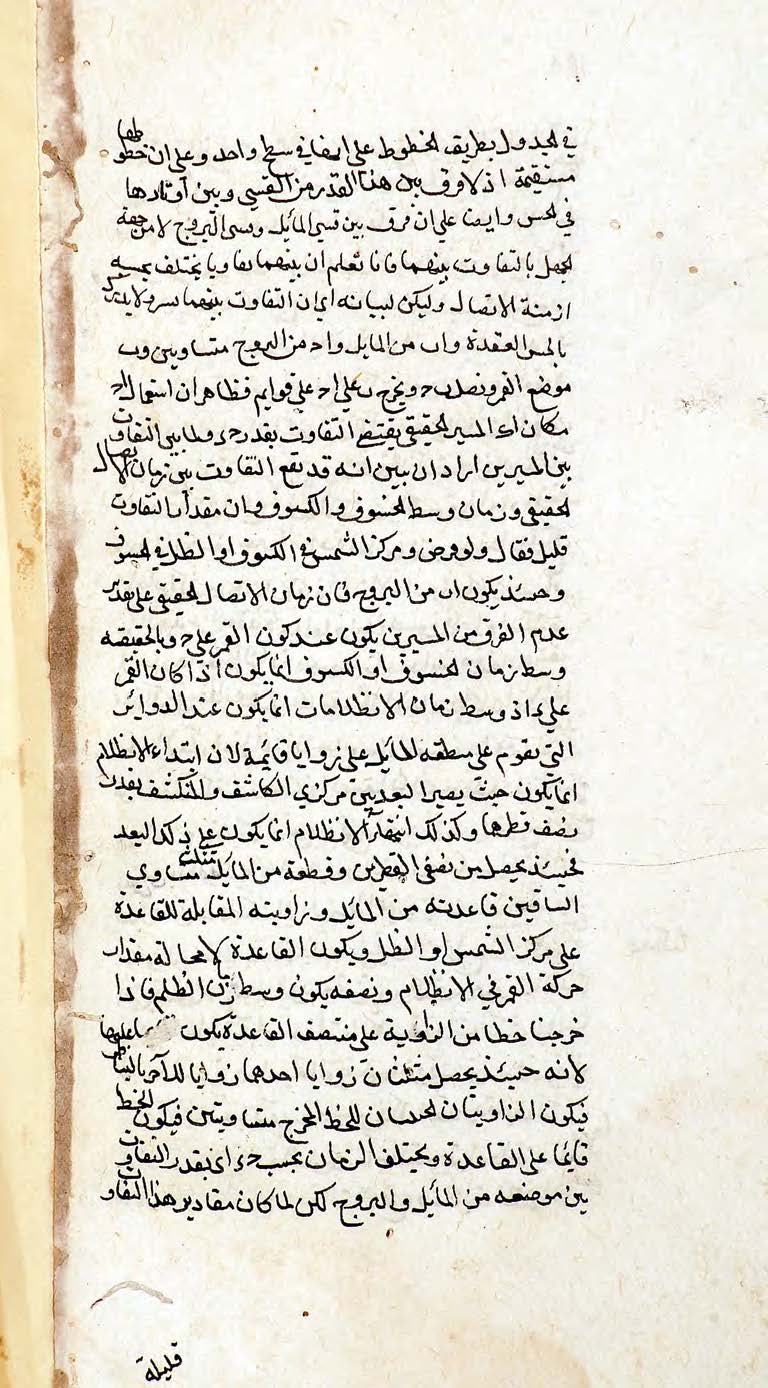 في الجدول بطريق الخطوط على انها في سطح واحد وعلى ان خطوطها
مستقيمة اذ لا فرق بين هذا القدر من القسي وبين أوتارها
في الحس وايضا على ان فرق بين قسي المائل وقسي البروج لا من جهة
الجهل بالتفاوت بينهما فانا نعلم ان بينهما تفاوتا يختلف بحسبه
ازمنة الاتصال وليكن لبيانه اي ان التفاوت بينهما يسير ولا يدرك
بالحس العقدة واب من المايل واد من البروج متساويين وب
موضع القمر ونصل ب د ونخرج ب ه على اد على قوايم فظاهر ان استعمال اد
مكان اه المسير الحقيقي يقتضي التفاوت بقدر د ه ولما بين التفاوت
بين المسيرين اراد ان يبين انه قد يقع التفاوت بين زمان الاتصال
الحقيقي وزمان وسط الخسوف والكسوف وبان مقدار التفاوت
قليل فقال ولو فرض د مركز الشمس في الكسوف او الظل في الخسوف
وحينئذ يكون اد من البروج فان زمان الاتصال الحقيقي على تقدير
عدم الفرق بين المسيرين يكون عند كون القمر على ب وبالحقيقه
وسط زمان الخسوف او الكسوف انما يكون اذا كان القمر
على ه اذ وسط زمان الانظلامات انما يكون عند الدوائر
التي تقوم على منطقه المايل على زوايا قائمة لان ابتداء الانظلام
انما يكون حيث يصير البعد بين مركزي الكاسف والمنكسف بقدر
نصف قطرهما وكذلك انتهاء الانظلام انما يكون على ذلك البعد
فحينئذ يحصل من نصفي القطرين وقطعة من المايل مثلث متساوي
الساقين قاعدته من المايل وزاويته المقابلة للقاعدة
على مركز الشمس او الظل ويكون القاعدة لا محالة مقدار
حركة القمر في الانظلام ونصفه يكون وسط زمان الظلام فاذا
خرجنا خطا من الزاوية على منتصف القاعدة يكون قائما عليها
لانه حينئذ يحصل مثلثان زوايا احدهما زوايا للآخر بالتناظر
فيكون الزاويتان الحادثتان للخط المخرج متساويتين فيكون الخط
قائما على القاعدة ويختلف الزمان بحسب د ه اي بقدر التفاوت
بين موضعه من المايل والبروج لكن لما كان مقادير هذا التفاوت
قليلة